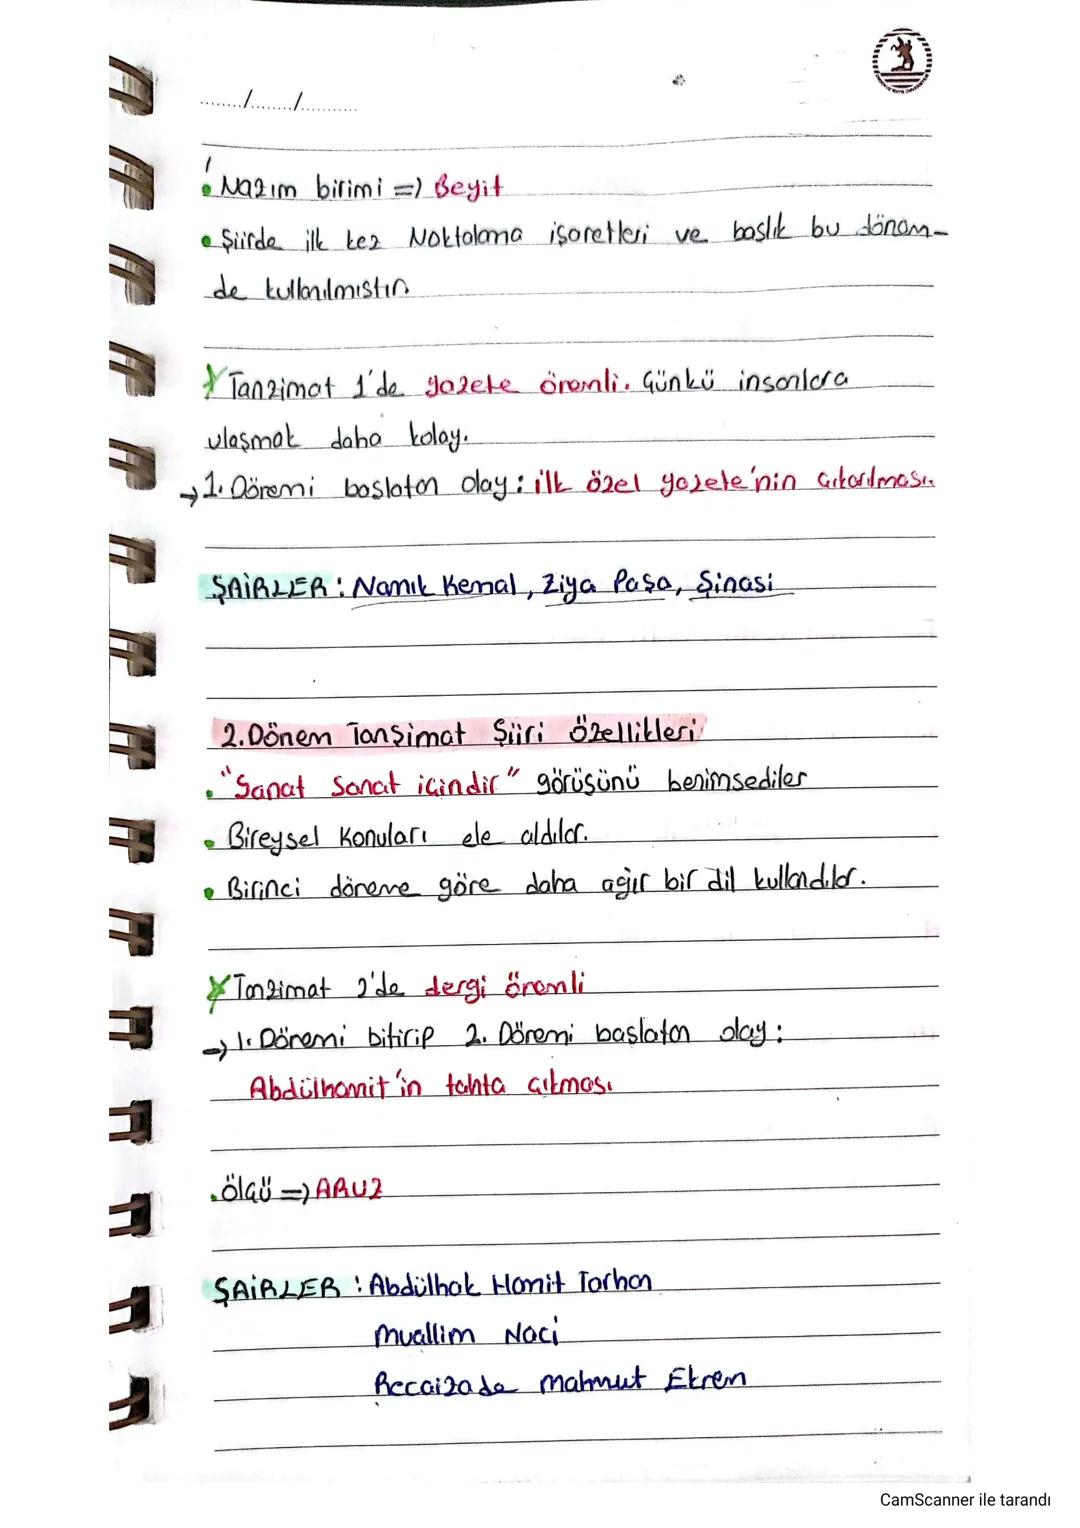 ......../......../............
• Nazım birimi => Beyit
• Şiirde ilk kez Noktalama işaretleri ve başlık bu dönem-
de kullanılmıştır.
Tanzimat 1'de gazete önemli. Günkü insanlara
ulaşmak daha kolay.
→ 1. Dönemi başlatan olay: ilk özel gazete'nin çıkarılması.
ŞAİRLER : Namık Kemal, Ziya Paşa, Şinasi
2.Dönem Tanzimat Şiiri Özellikleri
• "Sanat Sanat içindir" görüşünü benimsediler
• Bireysel Konuları ele aldılar.
• Birinci döneme göre daha ağır bir dil kullandılar.
Tanzimat 2'de dergi önemli
→ 1. Dönemi bitirip 2. Dönemi başlatan olay:
Abdülhamit'in tahta çıkması
• ölçü => ARUZ
ŞAİRLER : Abdülhak Hamit Tarhan
Muallim Naci
Recaizade Mahmut Ekrem
CamScanner ile tarandı